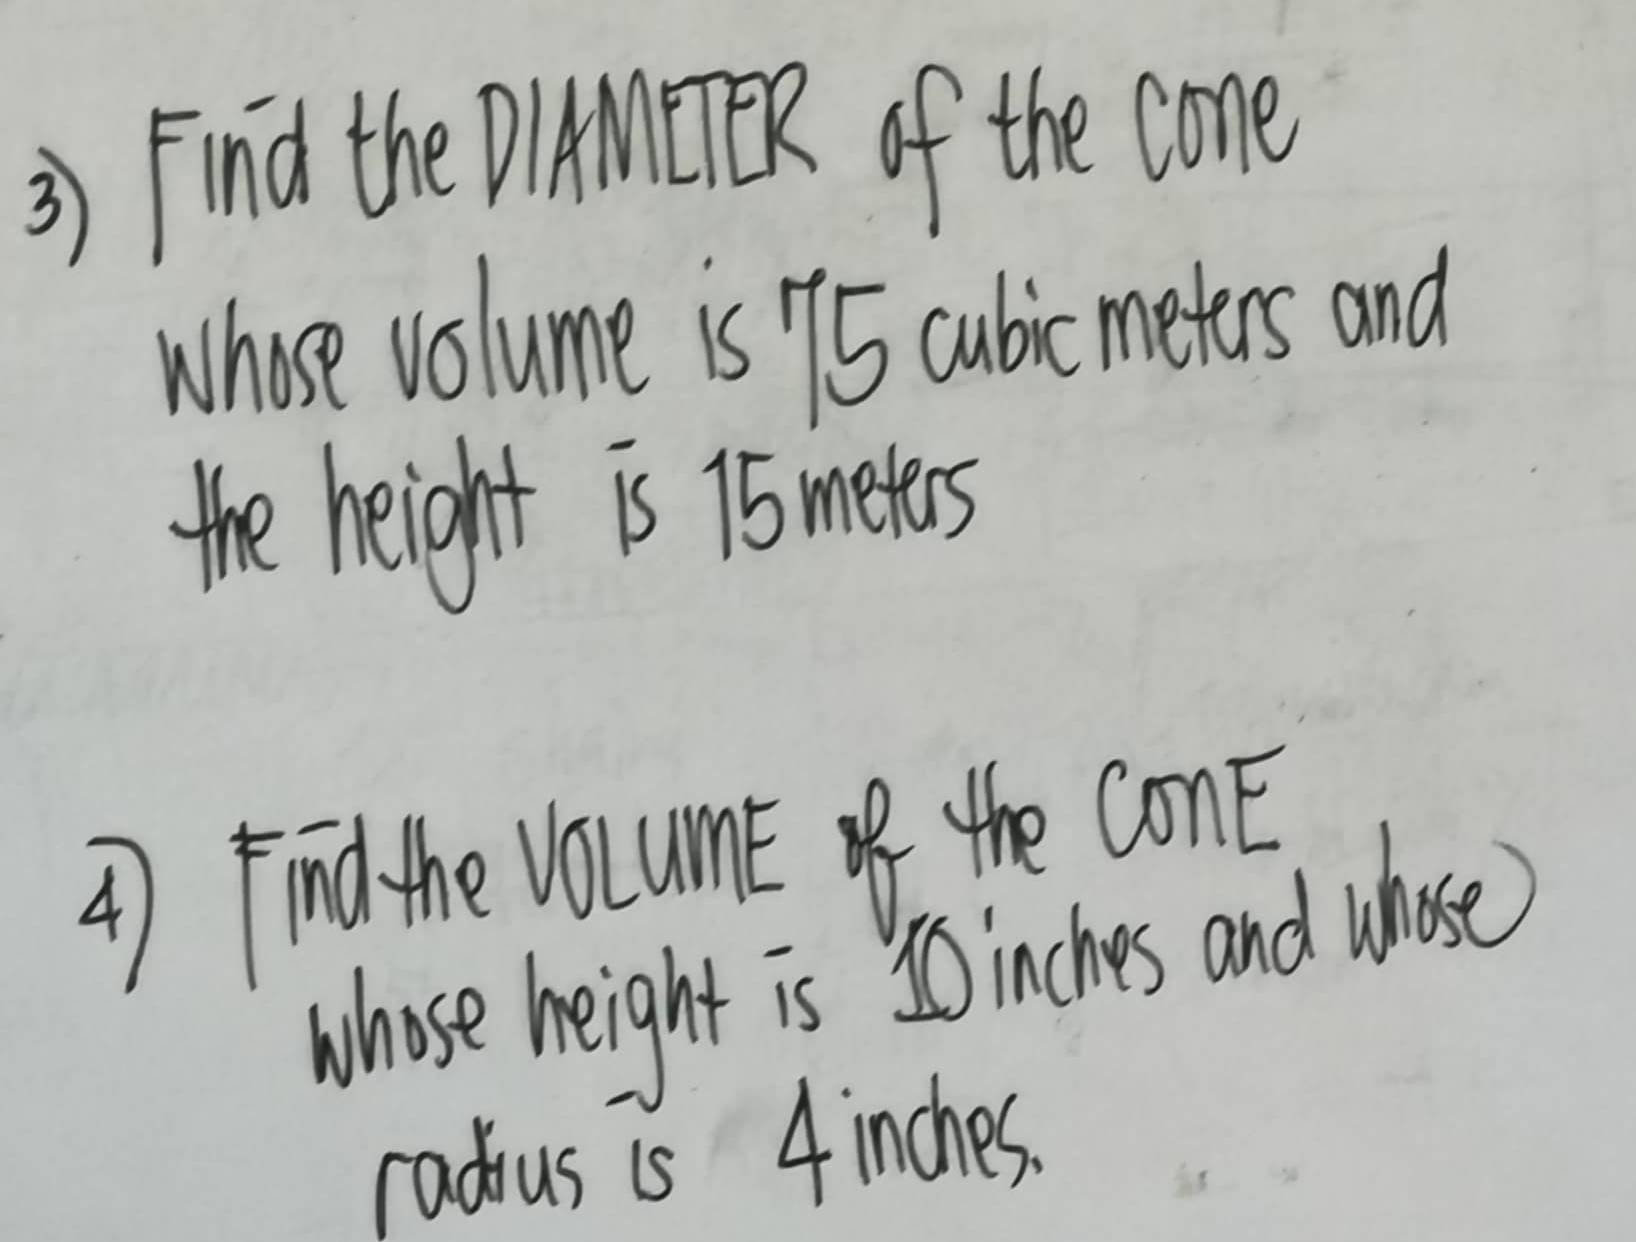 3) Find the DIAMETER of the cone
whose volume is 75 cubic meters and
the height is 15 meters
4) Find the VOLUME of the CONE
whose height is 10 inches and whose
radius is 4 inches.